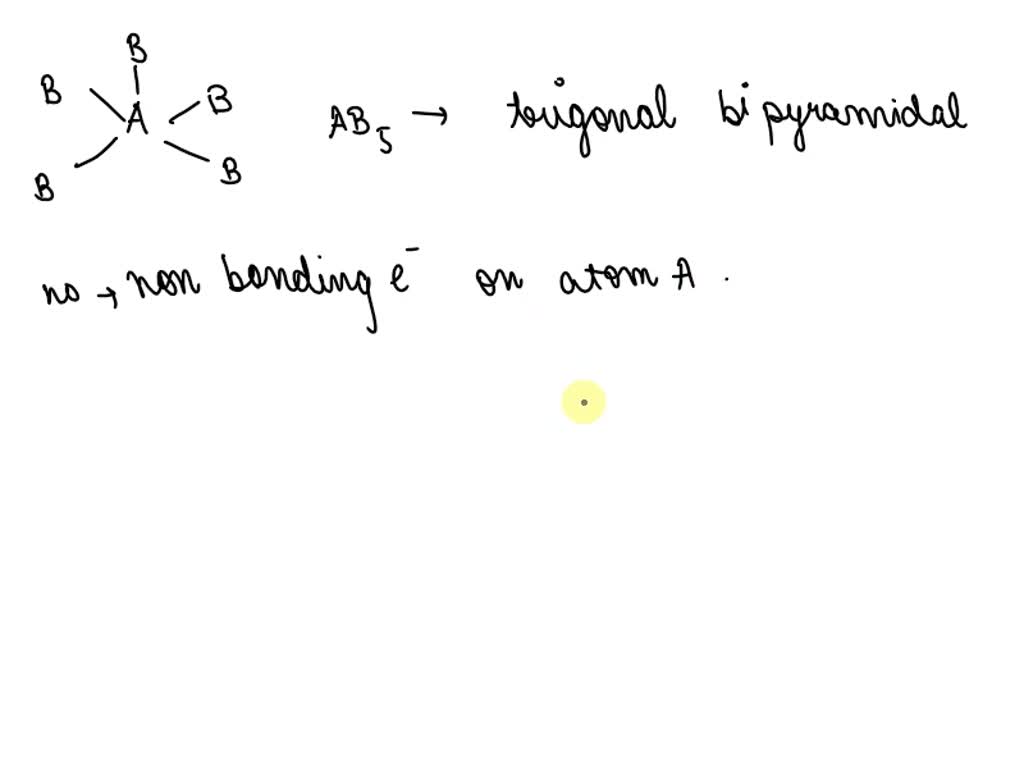 B
B A B AB5 → trigonal bipyramidal
B B
no → non bonding e⁻ on atom A .